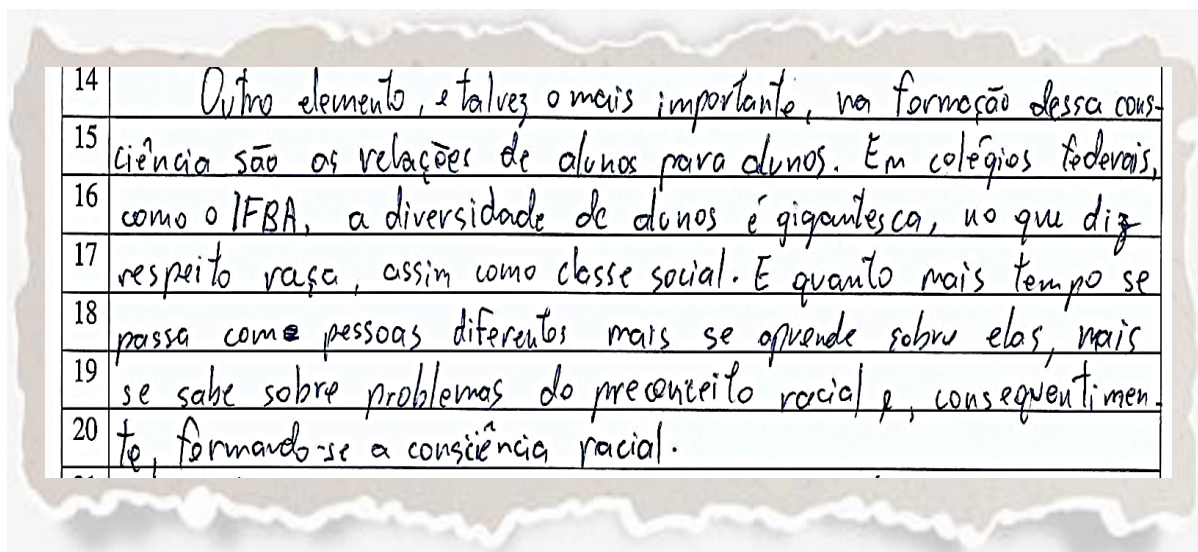 14 Outro elemento, e talvez o mais importante, na formação dessa cons-
15 ciência são as relações de alunos para alunos. Em colégios federais,
16 como o IFBA, a diversidade de alunos é gigantesca, no que diz
17 respeito raça, assim como classe social. E quanto mais tempo se
18 passa com pessoas diferentes mais se aprende sobre elas, mais
19 se sabe sobre problemas do preconceito racial e, consequentimen-
20 te, formando-se a consciência racial.